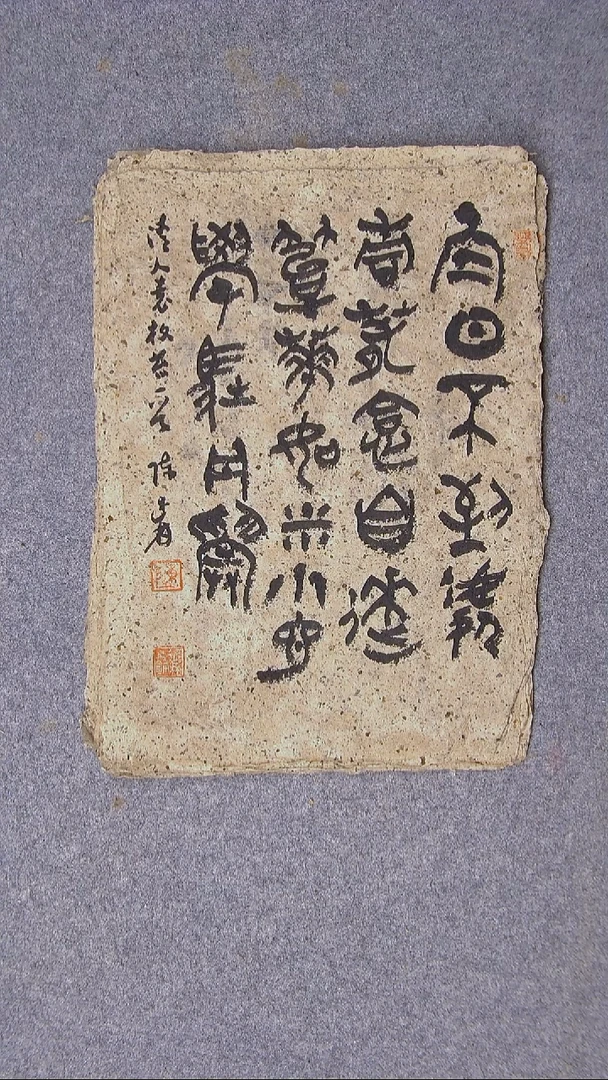 白日不到處
青春恰自來
苔華如米小也
學牡丹開
清人袁枚苔一首 陈